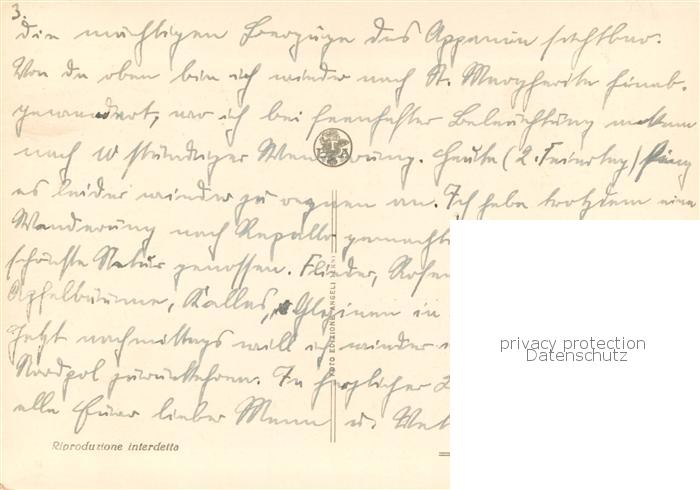 3.
die mächtigen Bergzüge des Appenin sichtbar.
Von da oben bin ich wieder nach St. Margherita hinab-
gewandert, wo ich bei feenhafter Beleuchtung
nach 10 stündiger Wanderung. Heute (2. Feiertag) fing
es leider wieder zu regnen an. Ich habe trotzdem eine
Wanderung nach Rapallo gemacht
schönste Natur genossen. Flieder, Rosen
Apfelbäume, Kallas, Glyzinen in
Jetzt nachmittags will ich wieder
Nordpol zurückkehren. In herzlicher
alle Euer lieber Mann u.
FOTO EDIZIONE ANGELI
Riproduzione interdetta
privacy protection
Datenschutz